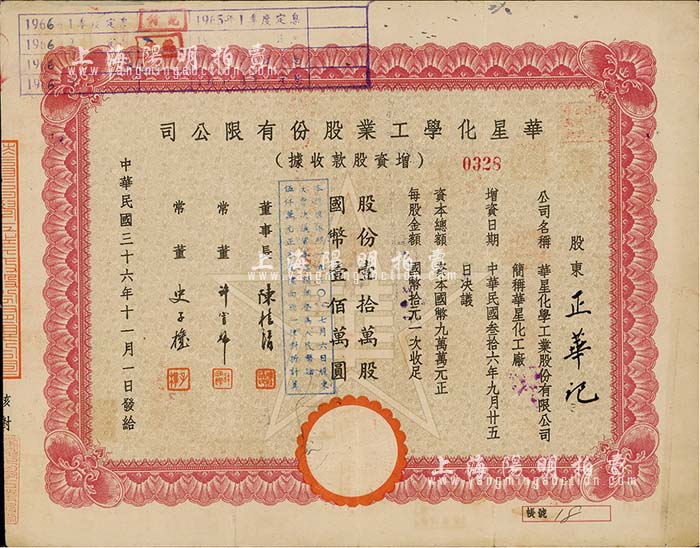 華星化學工業股份有限公司
(增資股款收據)
0328
股東 正華記
公司名稱 華星化學工業股份有限公司
簡稱華星化工廠
增資日期 中華民國叁拾六年九月廿五
日決議
資本總額 資本國幣九萬萬元正
每股金額 國幣拾元一次收足
股份壹拾萬股
國幣壹佰萬圓
董事長
常董
常董
中華民國三十六年十一月一日發給
核對
帳號 18
1966
1965年1年度定息
1966
1966
1966
上海陽明拍賣
www.yangmingauction.com
上海陽明拍賣
www.yangmingauction.com
上海陽明拍賣
www.yangmingauction.com